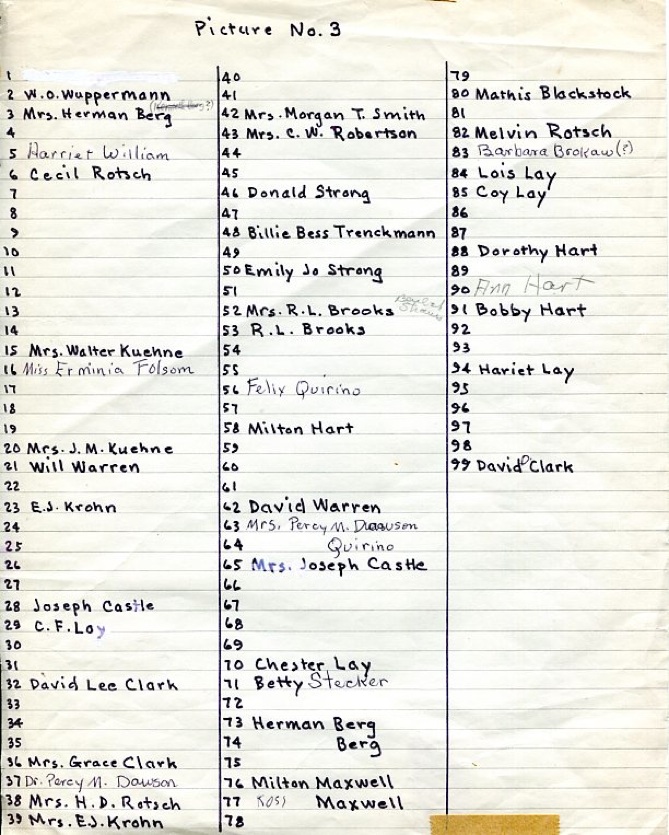 Picture No. 3
1
2 W.O. Wuppermann
3 Mrs. Herman Berg
4
5 Harriet William
6 Cecil Rotsch
7
8
9
10
11
12
13
14
15 Mrs. Walter Kuehne
16 Miss Erminia Folsom
17
18
19
20 Mrs. J. M. Kuehne
21 Will Warren
22
23 E.J. Krohn
24
25
26
27
28 Joseph Castle
29 C.F. Lay
30
31
32 David Lee Clark
33
34
35
36 Mrs. Grace Clark
37 Dr. Percy M. Dawson
38 Mrs. H.D. Rotsch
39 Mrs. E.J. Krohn
40
41
42 Mrs. Morgan T. Smith
43 Mrs. C. W. Robertson
44
45
46 Donald Strong
47
48 Billie Bess Trenckmann
49
50 Emily Jo Strong
51
52 Mrs. R.L. Brooks
53 R.L. Brooks
54
55
56 Felix Quirino
57
58 Milton Hart
59
60
61
62 David Warren
63 Mrs. Percy M. Dawson
64 Quirino
65 Mrs. Joseph Castle
66
67
68
69
70 Chester Lay
71 Betty Stecker
72
73 Herman Berg
74 Berg
75
76 Milton Maxwell
77 Maxwell
78
79
80 Mathis Blackstock
81
82 Melvin Rotsch
83 Barbara Brokaw (?)
84 Lois Lay
85 Coy Lay
86
87
88 Dorothy Hart
89
90 Ann Hart
91 Bobby Hart
92
93
94 Hariet Lay
95
96
97
98
99 David Clark